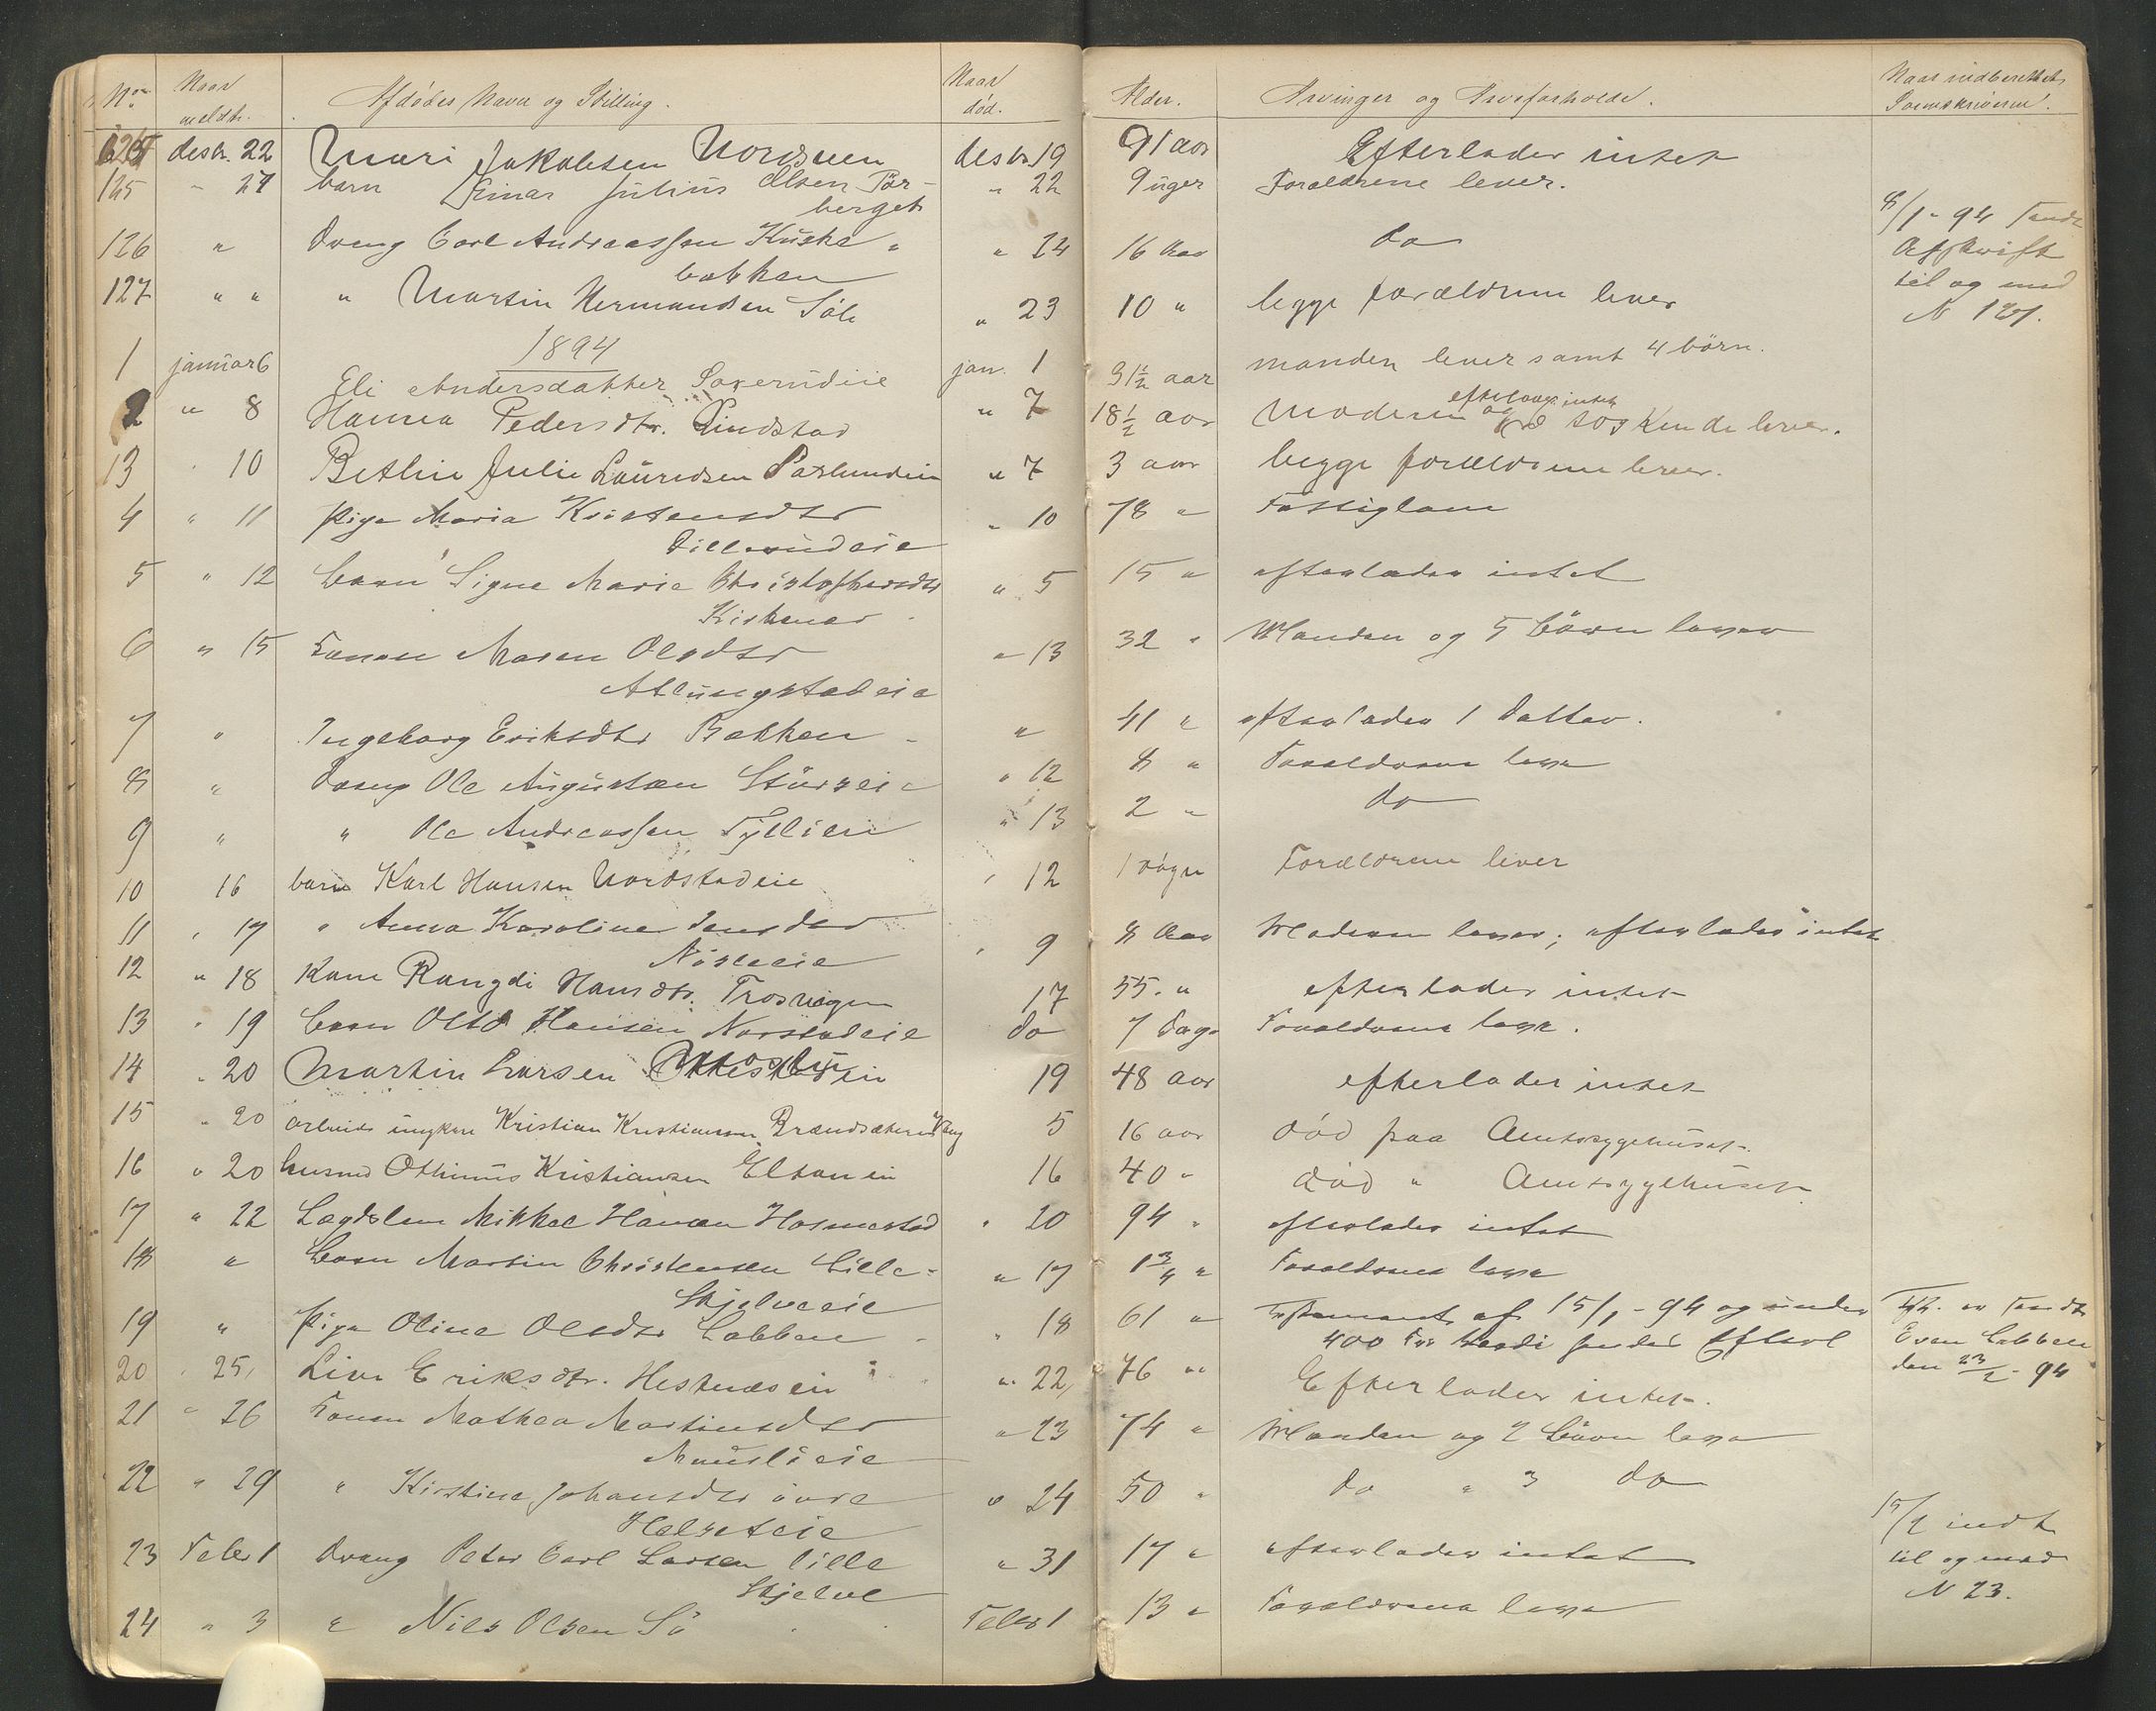 No. Naar meldt. Afdødes Navn og Stilling. Naar død. Alder. Arvinger og Arveforholde. Naar indberettet Sorenskriveren.
124 desbr. 22 Mari Jakobsen desbr. 19 91 aar Efterlader intet
125 " 27 barn Einar Julius Olsen " 22 9 uger Forældrene lever.
berget
126 " Dreng Carl Andreassen Kuske " 24 16 Aar do
bakken
8/1-94 Sendt
Afskrift
til og med
N 127.
127 " " " Martin Hermansen " 23 10 " begge forældrene lever
1894
1 januar 6 Eli Andersdatter jan. 1 31½ aar manden lever samt 4 børn.
2 " 8 Hanna Pedersdtr. Rindstad " 7 18½ aar Moderen og søskende lever.
efterlader intet
13 " 10 Bethie Julie Lauridsen " 7 3 aar begge forældrene lever.
4 " 11 Pige Maria Kristensdtr " 10 78 " Fattiglem
5 " 12 barn Signe Marie Christophersdtr " 5 15 " efterlader intet
6 " 15 Konen Maren Olsdtr " 13 32 " Manden og 5 Børn lever
Atlungstadeie
7 " Ingeborg Eriksdtr Bakken " 41 " efterlader 1 Datter.
8 " Dreng Ole Augustsen " 12 8 " Forældrene leve
9 " " Ole Andreassen " 13 2 " do
10 16 barn Karl Hansen Nordstadeie " 12 1 døgn Forældrene lever
11 " 17 " Anna Karoline Jensdtr " 9 8 Aar Moderen lever; efterlader intet
12 " 18 Kone Rangdi Hansdtr. Trosvigen 17 55. " efterlader intet
13 " 19 barn Otto Hansen Norstadeie do 7 Dage Forældrene leve.
14 " 20 Martin Larsen 19 48 aar efterlader intet
15 " 20 Kristian Kristiansen 5 16 aar død paa Amtssygehuset.
16 " 20 husmd Othinius Kristiansen 16 40 " død " Amtssygehuset.
17 " 22 Lægdslem Mikkel Hansen Hosmestad " 20 94 " efterlader intet
18 " barn Martin Christensen Lille- " 17 1¾ " Forældrene leve
Skjelveeie
19 " Pige Oline Olsdtr Labben " 18 61 " Testament af 15/1-94 og under
400 Kr
Even Labben
den 23/2-94
20 " 25, Live Eriksdtr. Hestnæseie " 22, 76 " Efterlader intet.
21 " 26 Konen Mathea Martinsdtr " 23 74 " Manden og 2 Børn leve
22 " 29 " Kirstine Johansdtr øvre " 24 50 " do " 3 do
15/2 indt
til og med
N 23.
23 Febr 1 Dreng Peter Carl Larsen lille " 31 17 " efterlader intet
Skjelve
24 " 3 " Nils Olsen Febr 1 13 " Forældrene leve